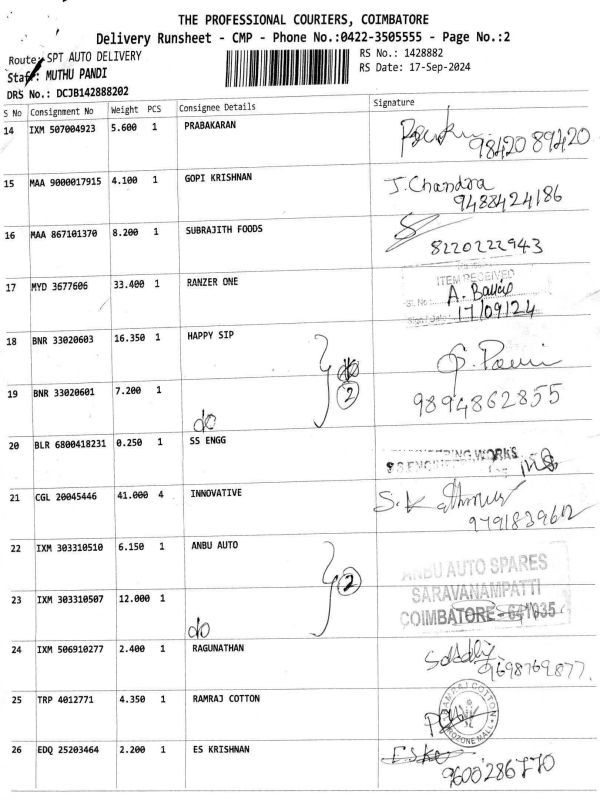 THE PROFESSIONAL COURIERS, COIMBATORE
Delivery Runsheet - CMP - Phone No.:0422-3505555 - Page No.:2
Route: SPT AUTO DELIVERY
RS No.: 1428882
Staff: MUTHU PANDI
RS Date: 17-Sep-2024
DRS No.: DCJB142888202
S No Consignment No Weight PCS Consignee Details Signature
14 IXM 507004923 5.600 1 PRABAKARAN
98420 89420
15 MAA 9000017915 4.100 1 GOPI KRISHNAN J. Chandra
9488424186
16 MAA 867101370 8.200 1 SUBRAJITH FOODS
8220222943
17 MYD 3677606 33.400 1 RANZER ONE
ITEM RECEIVED
Sl. No.:
A.
Sign / Date: 17/09/24
18 BNR 33020603 16.350 1 HAPPY SIP
19 BNR 33020601 7.200 1 do 2
9894862855
20 BLR 6800418231 0.250 1 SS ENGG
21 CGL 20045446 41.000 4 INNOVATIVE
9791839612
22 IXM 303310510 6.150 1 ANBU AUTO
2
ANBU AUTO SPARES
SARAVANAMPATTI
COIMBATORE - 641035
23 IXM 303310507 12.000 1 do
24 IXM 506910277 2.400 1 RAGUNATHAN
9698769877.
25 TRP 4012771 4.350 1 RAMRAJ COTTON
RAMRAJ COTTON
26 EDQ 25203464 2.200 1 ES KRISHNAN
9600286770